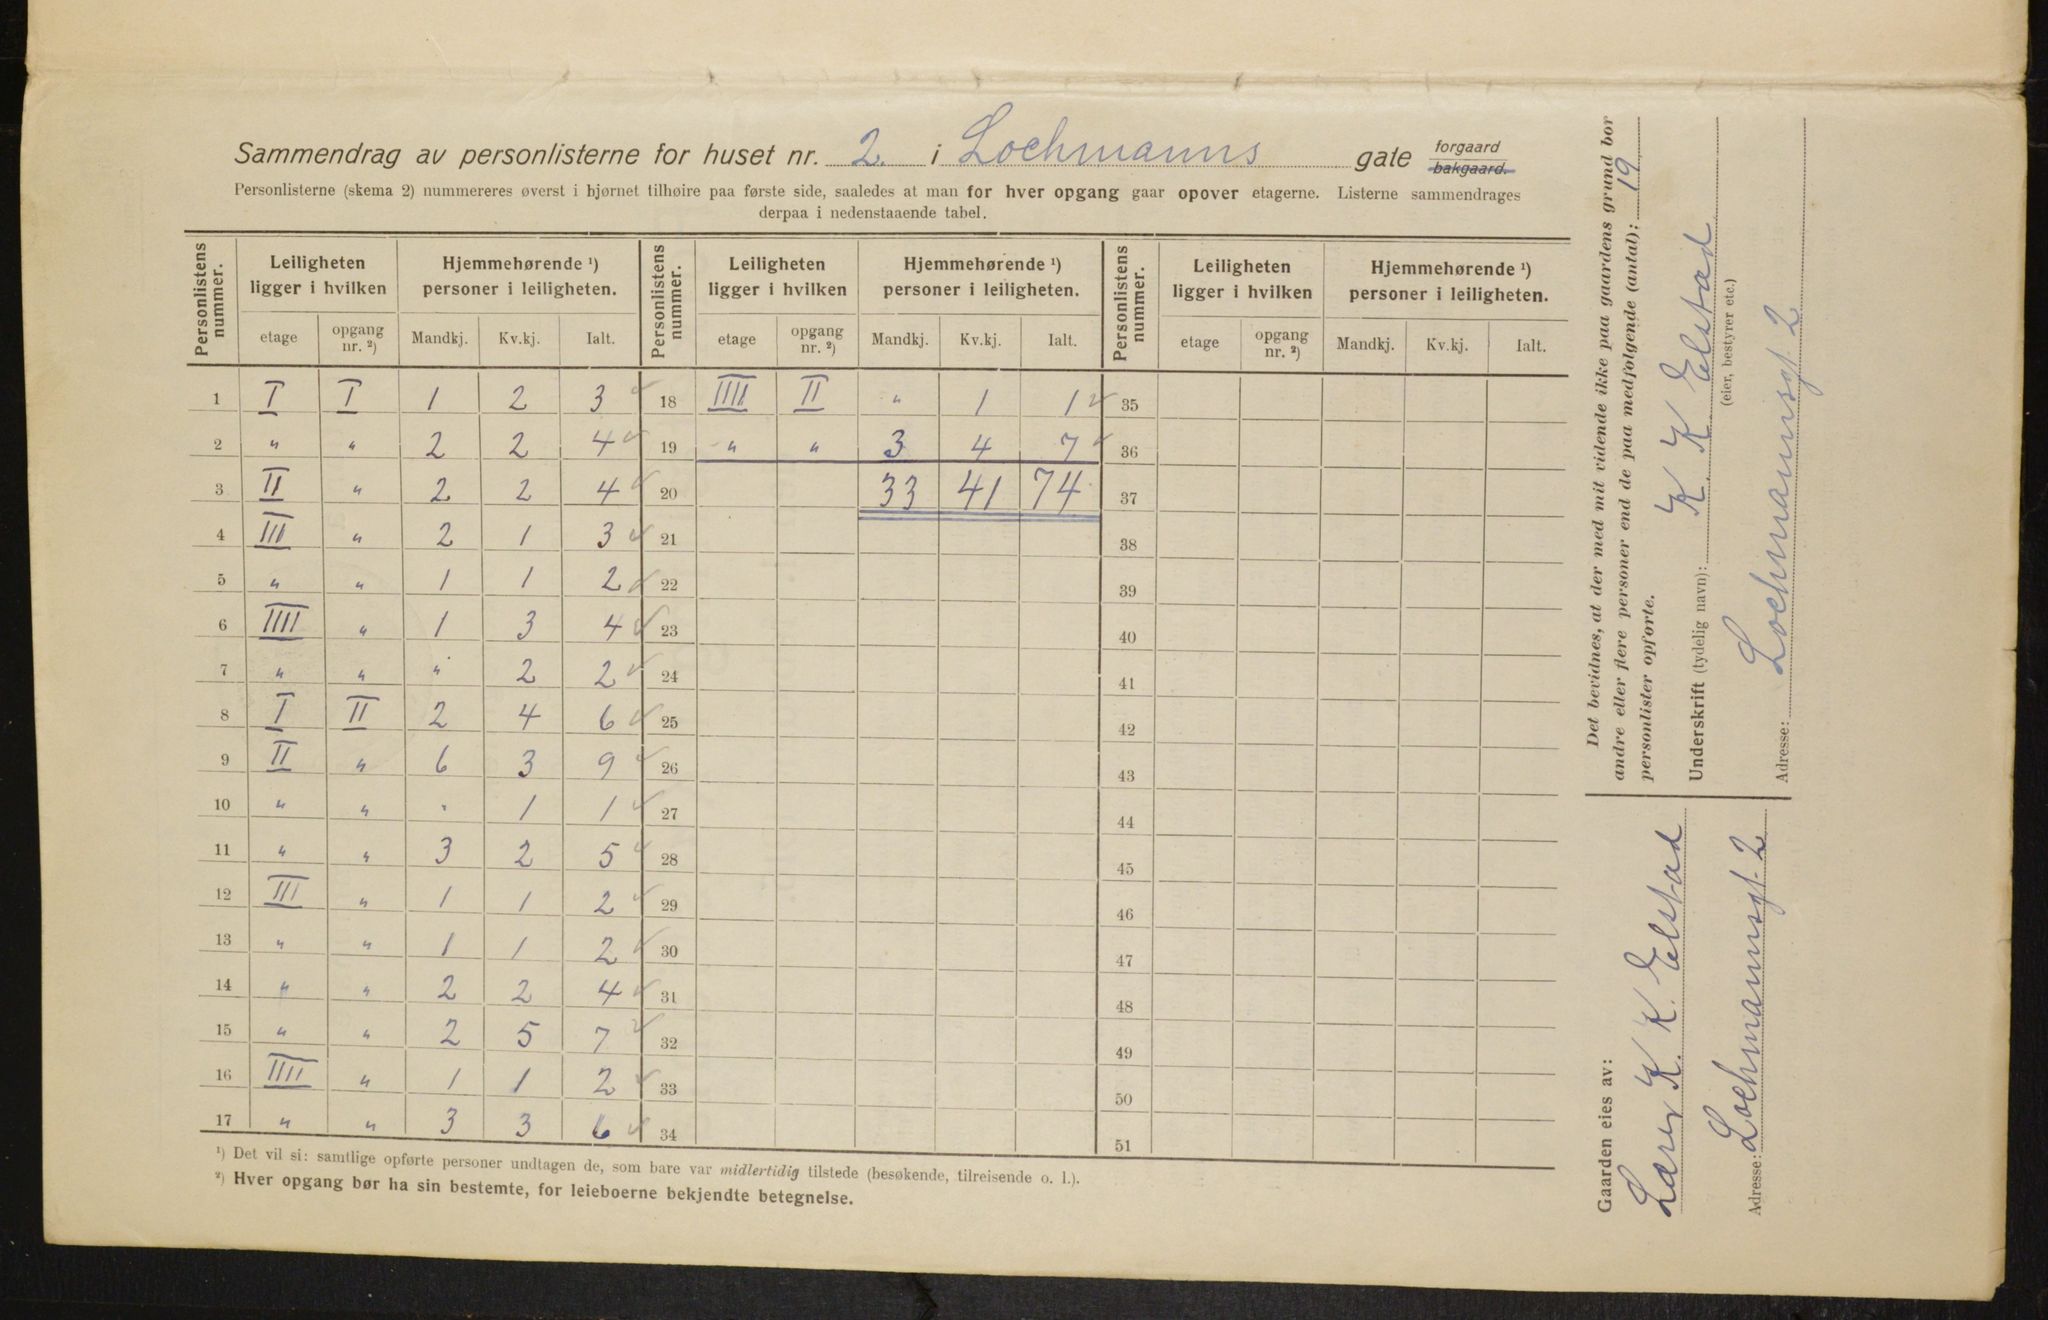 Sammendrag av personlisterne for huset nr. 2. i Lochmanns gate forgaard bakgaard.
Personlisterne (skema 2) nummereres øverst i hjørnet tilhøire paa første side, saaledes at man for hver opgang gaar opover etagerne. Listerne sammendrages
derpaa i nedenstaaende tabel.
Personlistens nummer. Leiligheten ligger i hvilken Hjemmehørende ¹) personer i leiligheten. Personlistens nummer. Leiligheten ligger i hvilken Hjemmehørende ¹) personer i leiligheten. Personlistens nummer. Leiligheten ligger i hvilken Hjemmehørende ¹) personer i leiligheten.
etage opgang nr. ²) Mandkj. Kv.kj. Ialt. etage opgang nr. ²) Mandkj. Kv.kj. Ialt. etage opgang nr. ²) Mandkj. Kv.kj. Ialt.
1 I I 1 2 3 18 IIII II " 1 1 35
2 " " 2 2 4 19 " " 3 4 7 36
3 II " 2 2 4 20 33 41 74 37
4 III " 2 1 3 21 38
5 " " 1 1 2 22 39
6 IIII " 1 3 4 23 40
7 " " " 2 2 24 41
8 I II 2 4 6 25 42
9 II " 6 3 9 26 43
10 " " " 1 1 27 44
11 " " 3 2 5 28 45
12 III " 1 1 2 29 46
13 " " 1 1 2 30 47
14 " " 2 2 4 31 48
15 " " 2 5 7 32 49
16 IIII " 1 1 2 33 50
17 " " 3 3 6 34 51
¹) Det vil si: samtlige opførte personer undtagen de, som bare var midlertidig tilstede (besøkende, tilreisende o. l.).
²) Hver opgang bør ha sin bestemte, for leieboerne bekjendte betegnelse.
Det bevidnes, at der med mit vidende ikke paa gaardens grund bor
andre eller flere personer end de paa medfølgende (antal): 19
personlister opførte.
Underskrift (tydelig navn): K. K. Elstad
(eier, bestyrer etc.)
Adresse: Lochmannsgt. 2
Gaarden eies av:
Lærer K. K. Elstad
Adresse: Lochmannsgt. 2